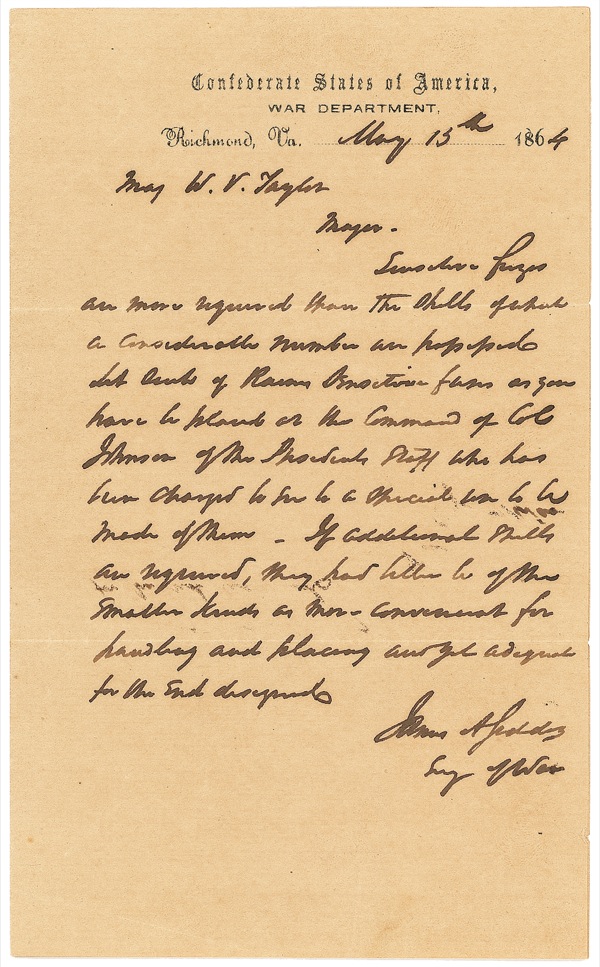 Confederate States of America,
WAR DEPARTMENT,
Richmond, Va. May 15th 1864
Maj W. V. Taylor
Major -
Sensitive fuzes
are more required than the Shells of which
a considerable number are possessed
Let such of Rains Sensitive fuses as you
have be placed at the Command of Col
Johnson of the Presidents Staff who has
been charged to see to a special use to be
made of them - If additional Shells
are required, they had better be of the
smaller kinds as more convenient for
handling and placing and yet adequate
for the End designed
James A Seddon
Secy of War